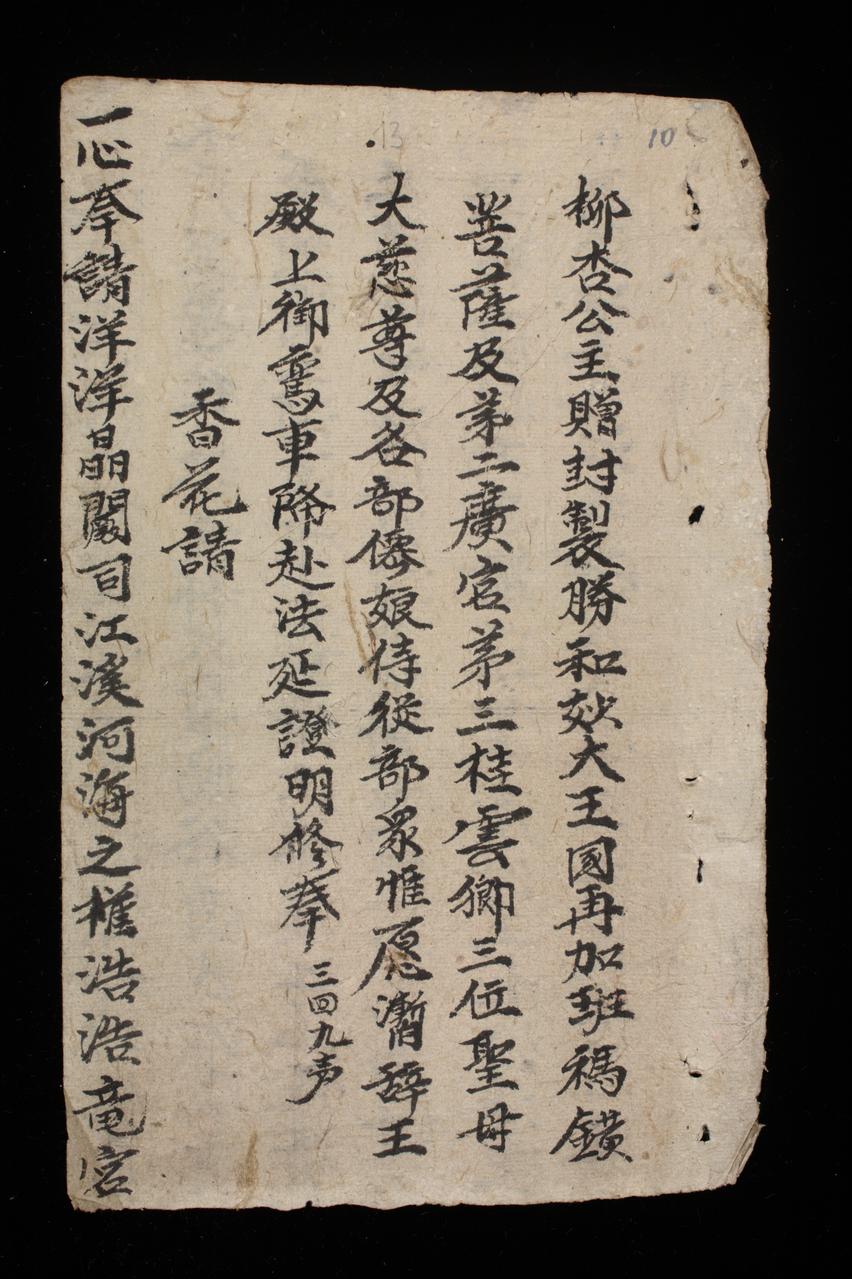 10
13
柳杏公主贈封製勝和妙大王國再加班禡鐄
菩薩及苐二廣宫苐三桂雲鄉三位聖母
大慈尊及各部僊娘侍從部衆惟愿暫辞王
殿上御鸞車降赴法延證明修奉三回九声
香花請
一心奉請洋洋晶闕司江溪河海之權浩浩竜宫